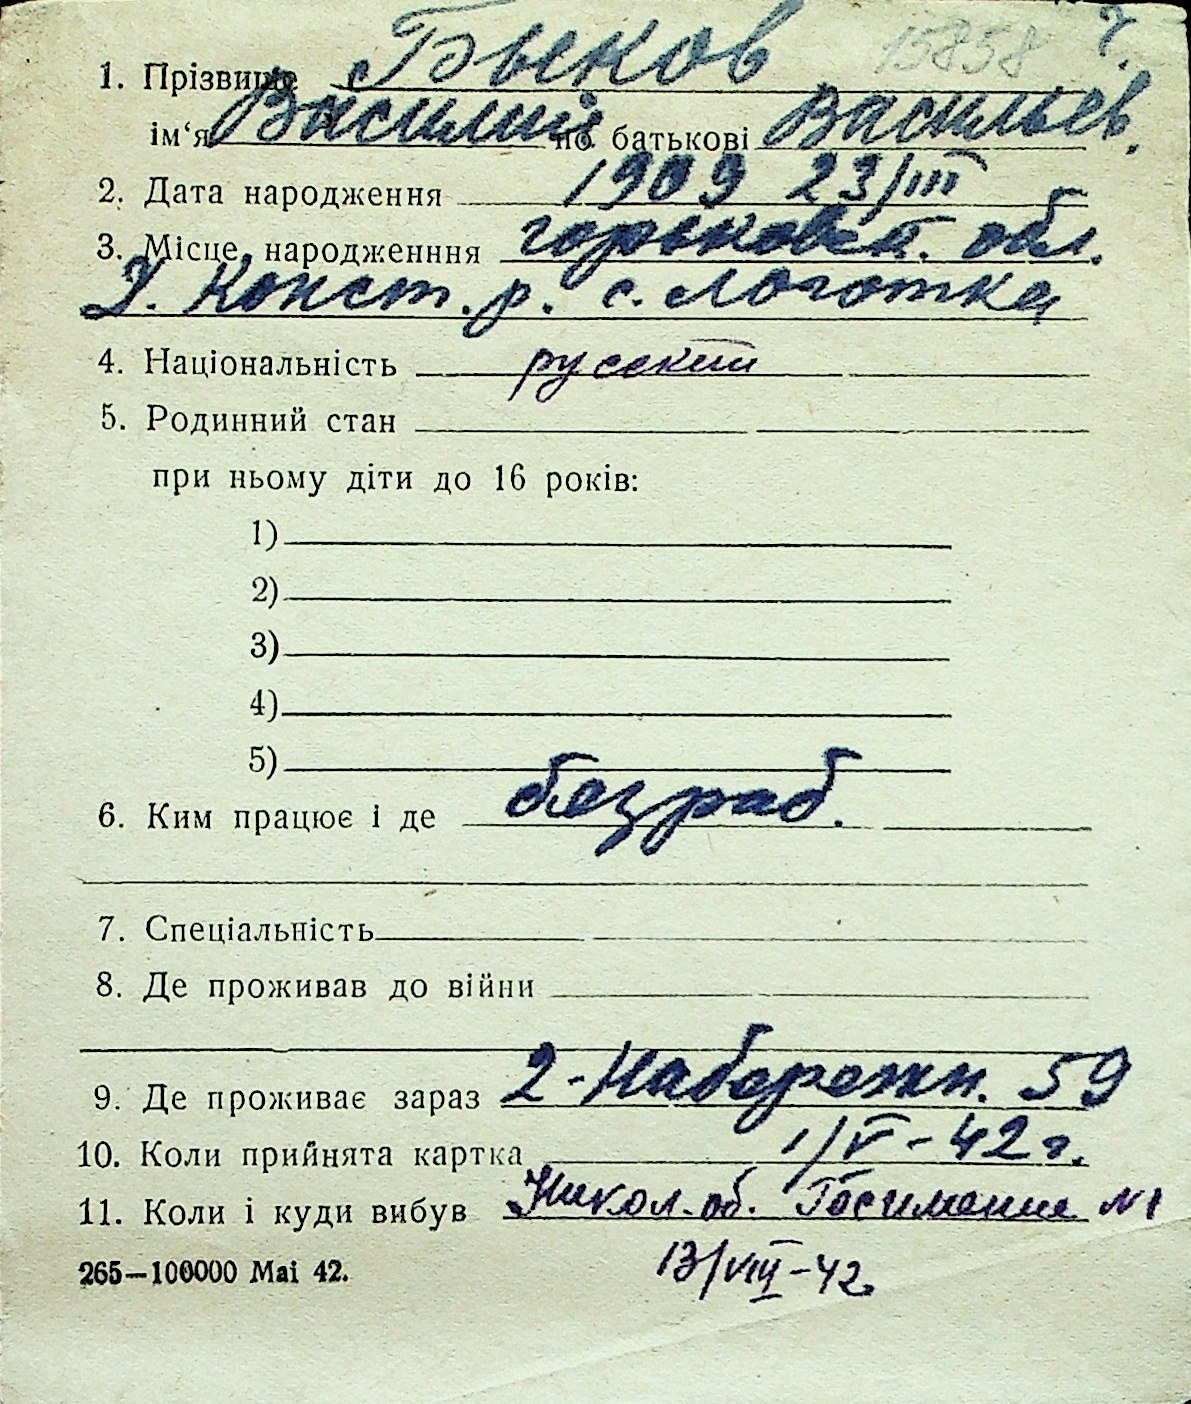 15858
1. Прізвище Быков
ім‘я Василий по батькові Васильев.
2. Дата народження 1909 23/III
3. Місце народженння горьковск. обл.
Д. Конст. р. с. Логотка
4. Національність русский
5. Родинний стан
при ньому діти до 16 років:
1)
2)
3)
4)
5)
6. Ким працює і де безраб.
7. Спеціальність
8. Де проживав до війни
9. Де проживає зараз 2-Набережн. 59
10. Коли прийнята картка 1/V-42 г.
11. Коли і куди вибув Никол. об. Госимение №1
265—100000 Маі 42. 13/VIII-42